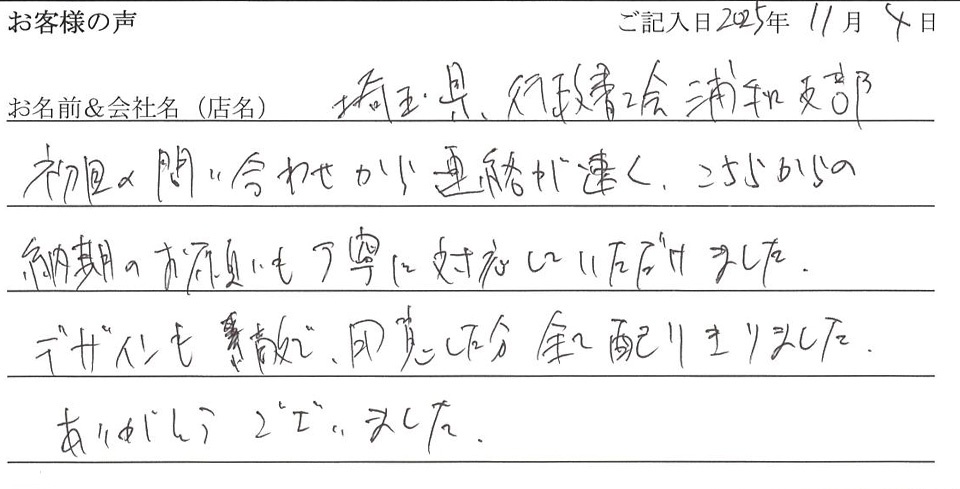 お客様の声 ご記入日2025年 11月 4日
お名前&会社名(店名) 埼玉県行政書士会浦和支部
初回の問い合わせから連絡が速く、こちらからの
納期のお願いも丁寧に対応していただけました。
デザインも素敵で、用意した分全て配りきりました。
ありがとうございました。